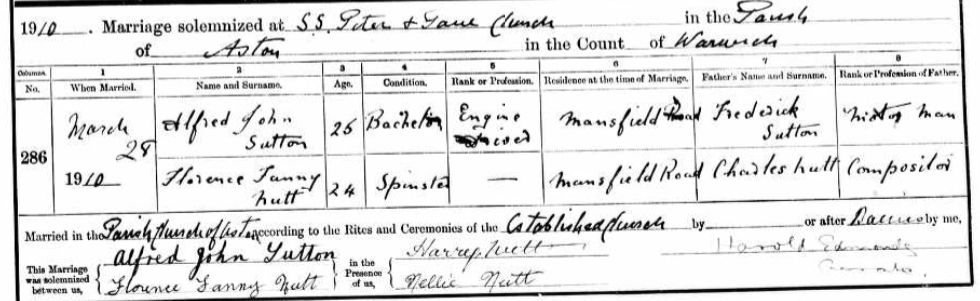 1910. Marriage solemnized at S.S. Peter & Paul Church in the Parish
of Aston in the Count of Warwick
Columns 1 2 3 4 5 6 7 8
No. When Married. Name and Surname. Age. Condition. Rank or Profession. Residence at the time of Marriage. Father's Name and Surname. Rank or Profession of Father.
286 March 28 1910 Alfred John Sutton 25 Bachelor Engine Driver Mansfield Road Frederick Sutton man
Florence Fanny Nutt 24 Spinster — Mansfield Road Charles Nutt Compositor
Married in the Parish Church of Aston according to the Rites and Ceremonies of the Established Church by or after Banns by me,
This Marriage was solemnized between us, Alfred John Sutton in the Presence of us, Harry Nutt Harold Edmonds
Florence Fanny Nutt Nellie Nutt